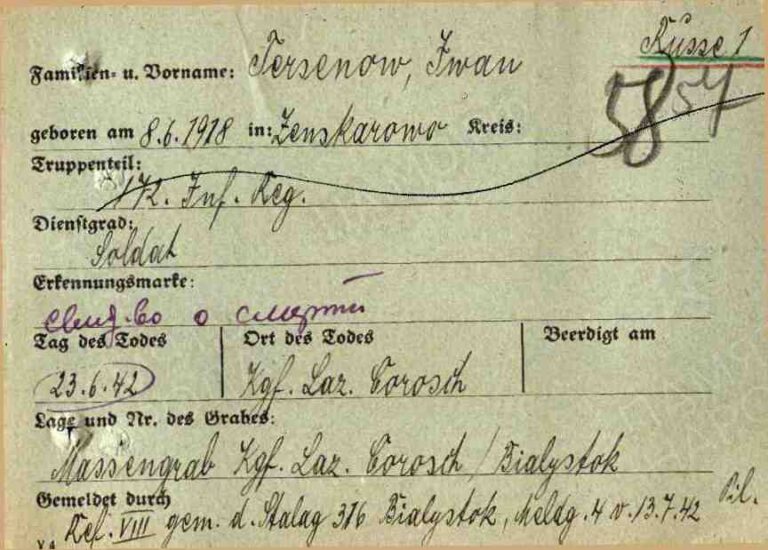 Russe 1
Familien- u. Vorname: Tersenow, Iwan
58 57
geboren am 8.6.1918 in: Zenskarowo Kreis:
Truppenteil:
172. Inf. Reg.
Dienstgrad:
Soldat
Erkennungsmarke:
свид-во о смерти
Tag des Todes Ort des Todes Beerdigt am
23.6.42 Kgf. Laz. Corosch
Lage und Nr. des Grabes:
Massengrab Kgf. Laz. Corosch / Bialystok
Gemeldet durch
Ref. VIII gem. d. Stalag 316 Bialystok, Meldg. 4 v. 13.7.42